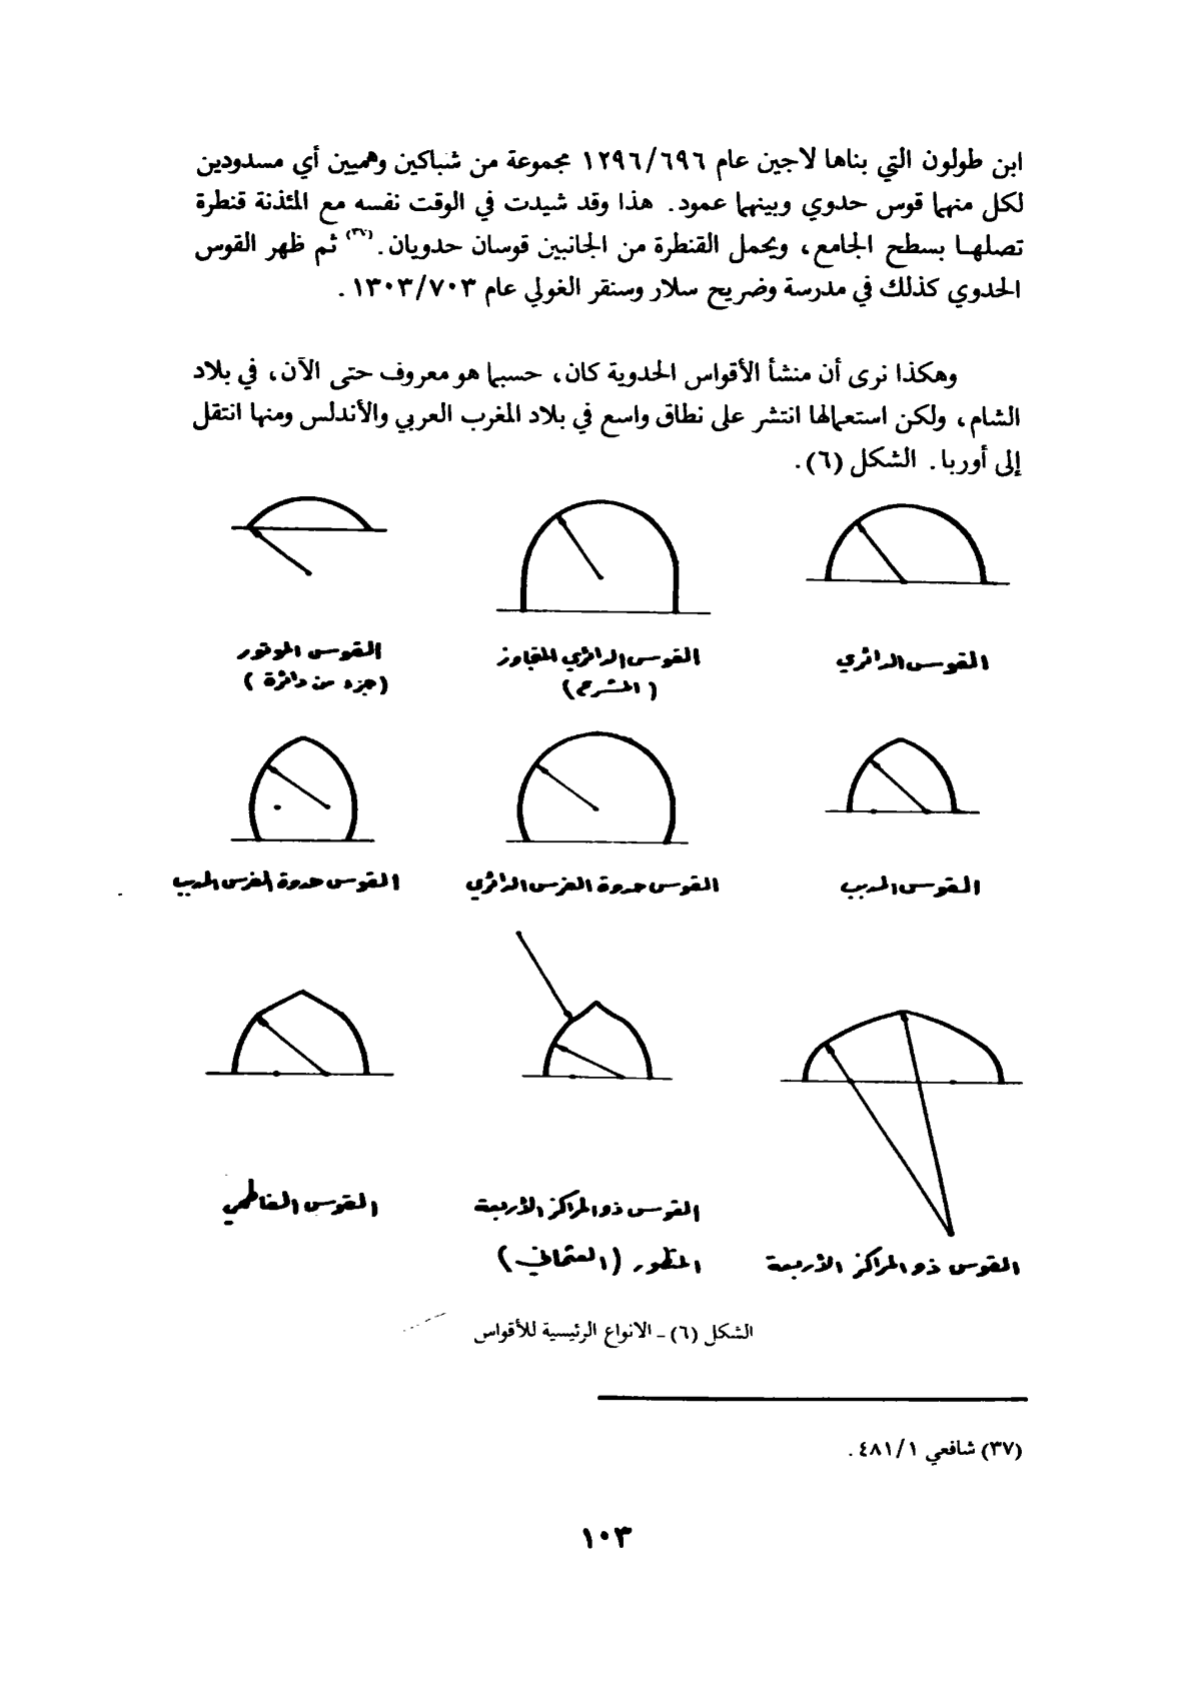 ابن طولون التي بناها لاجين عام ٦٩٦/١٢٩٦ مجموعة من شباكين وهميين أي مسدودين
لكل منهما قوس حدوي وبينهما عمود. هذا وقد شيدت في الوقت نفسه مع المئذنة قنطرة
تصلهـا بسطح الجامع، ويحمل القنطرة من الجانبين قوسان حدويان.(٣٧) ثم ظهر القوس
الحدوي كذلك في مدرسة وضريح سلار وسنقر الغولي عام ٧٠٣/١٣٠٣.
وهكذا نرى أن منشأ الأقواس الحدوية كان، حسبما هو معروف حتى الآن، في بلاد
الشام، ولكن استعمالها انتشر على نطاق واسع في بلاد المغرب العربي والأندلس ومنها انتقل
إلى أوربا. الشكل (٦).
القوس الدائري
القوس الدائري المتجاوز
(المشرع)
القوس الموتور
(جزء من دائرة)
القوس المدبب
القوس حدوة الفرس الدائري
القوس حدوة الفرس المدبب
القوس ذو المراكز الأربعة
القوس ذو المراكز الأربعة
المطور (العثماني)
القوس الفاطمي
الشكل (٦) ـ الانواع الرئيسية للأقواس
(٣٧) شافعي ١/٤٨١.
١٠٣